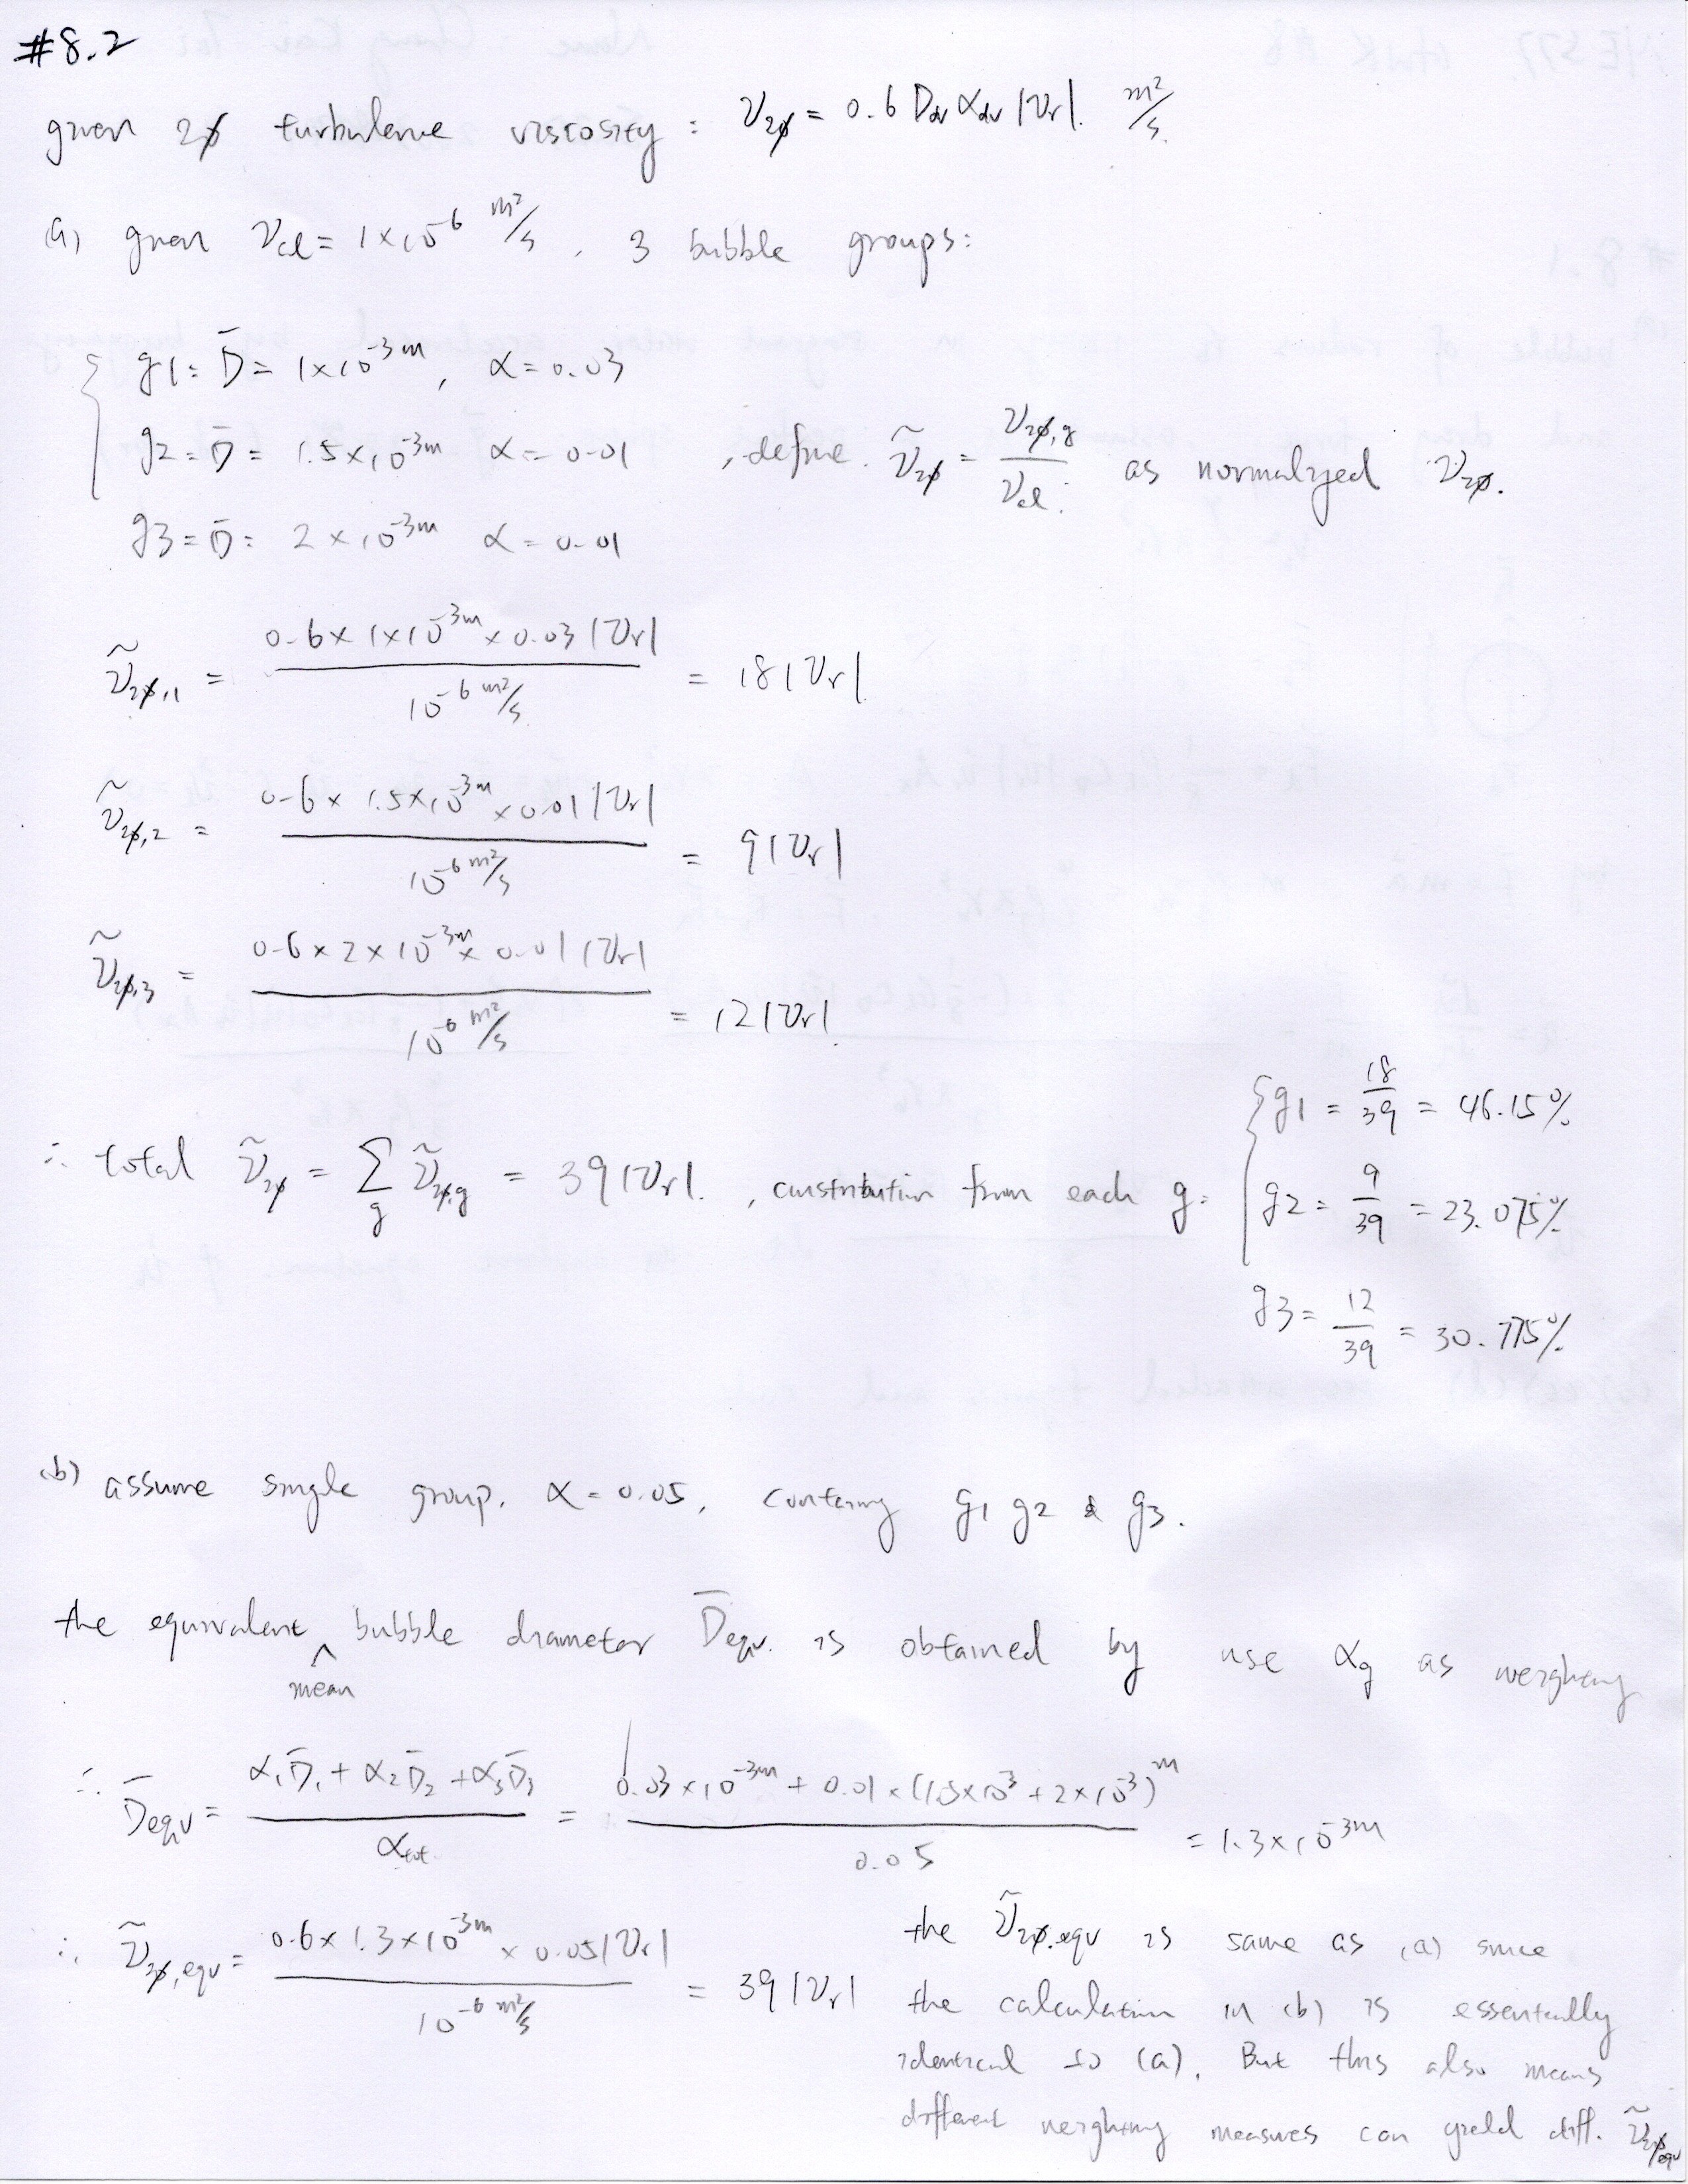 #8.2
given 2ϕ turbulence viscosity : ν₂ϕ = 0.6 D_dv α_dv |v_r| m²/s
(a) given ν_cl = 1×10⁻⁶ m²/s , 3 bubble groups:
g1: D̄ = 1×10⁻³m , α=0.03
g2: D̄ = 1.5×10⁻³m α=0.01 , define ν̃₂ϕ = ν₂ϕ,g / ν_cl as normalized ν₂ϕ.
g3: D̄ = 2×10⁻³m α=0.01
ν̃₂ϕ,1 = 0.6×1×10⁻³m×0.03|v_r| / 10⁻⁶ m²/s = 18|v_r|
ν̃₂ϕ,2 = 0.6×1.5×10⁻³m×0.01|v_r| / 10⁻⁶ m²/s = 9|v_r|
ν̃₂ϕ,3 = 0.6×2×10⁻³m×0.01|v_r| / 10⁻⁶ m²/s = 12|v_r|
∴ total ν̃₂ϕ = Σ_g ν̃₂ϕ,g = 39|v_r|. , constribution from each g:
g1 = 18/39 = 46.15%
g2 = 9/39 = 23.075%
g3 = 12/39 = 30.775%
(b) assume single group, α=0.05, containing g1 g2 & g3.
the equivalent mean bubble diameter D̄equv. is obtained by use αg as weighing
∴ D̄equv = α₁D̄₁ + α₂D̄₂ + α₃D̄₃ / αtot. = 0.03×10⁻³m + 0.01×(1.5×10⁻³ + 2×10⁻³)m / 0.05 = 1.3×10⁻³m
∴ ν̃₂ϕ,equ = 0.6×1.3×10⁻³m×0.05|v_r| / 10⁻⁶ m²/s = 39|v_r|
the ν̃₂ϕ,equ is same as (a) since
the calculation in (b) is essentially
identical to (a). But this also means
different weighing measures can yield diff. ν̃₂ϕ,equ